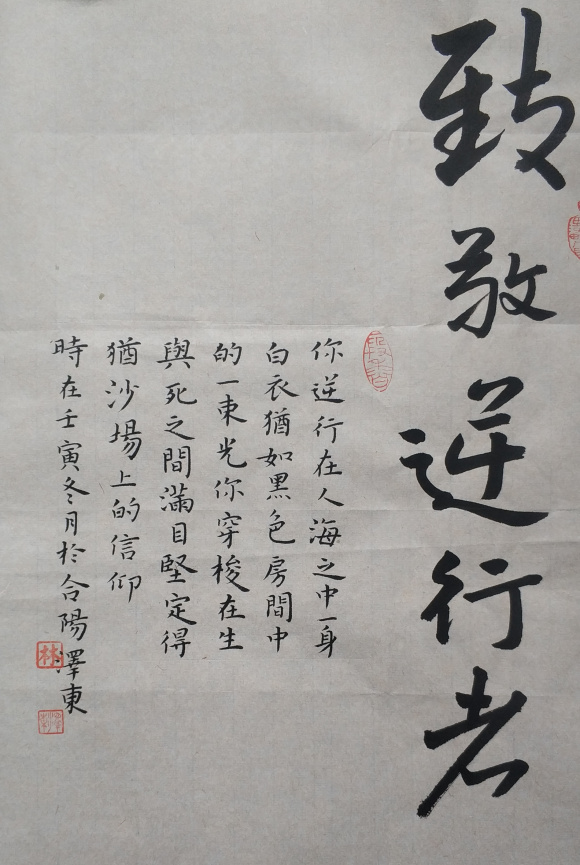 致敬逆行者
你逆行在人海之中一身
白衣猶如黑色房間中
的一束光你穿梭在生
與死之間滿目堅定得
猶沙場上的信仰
時在壬寅冬月於合陽澤東
林